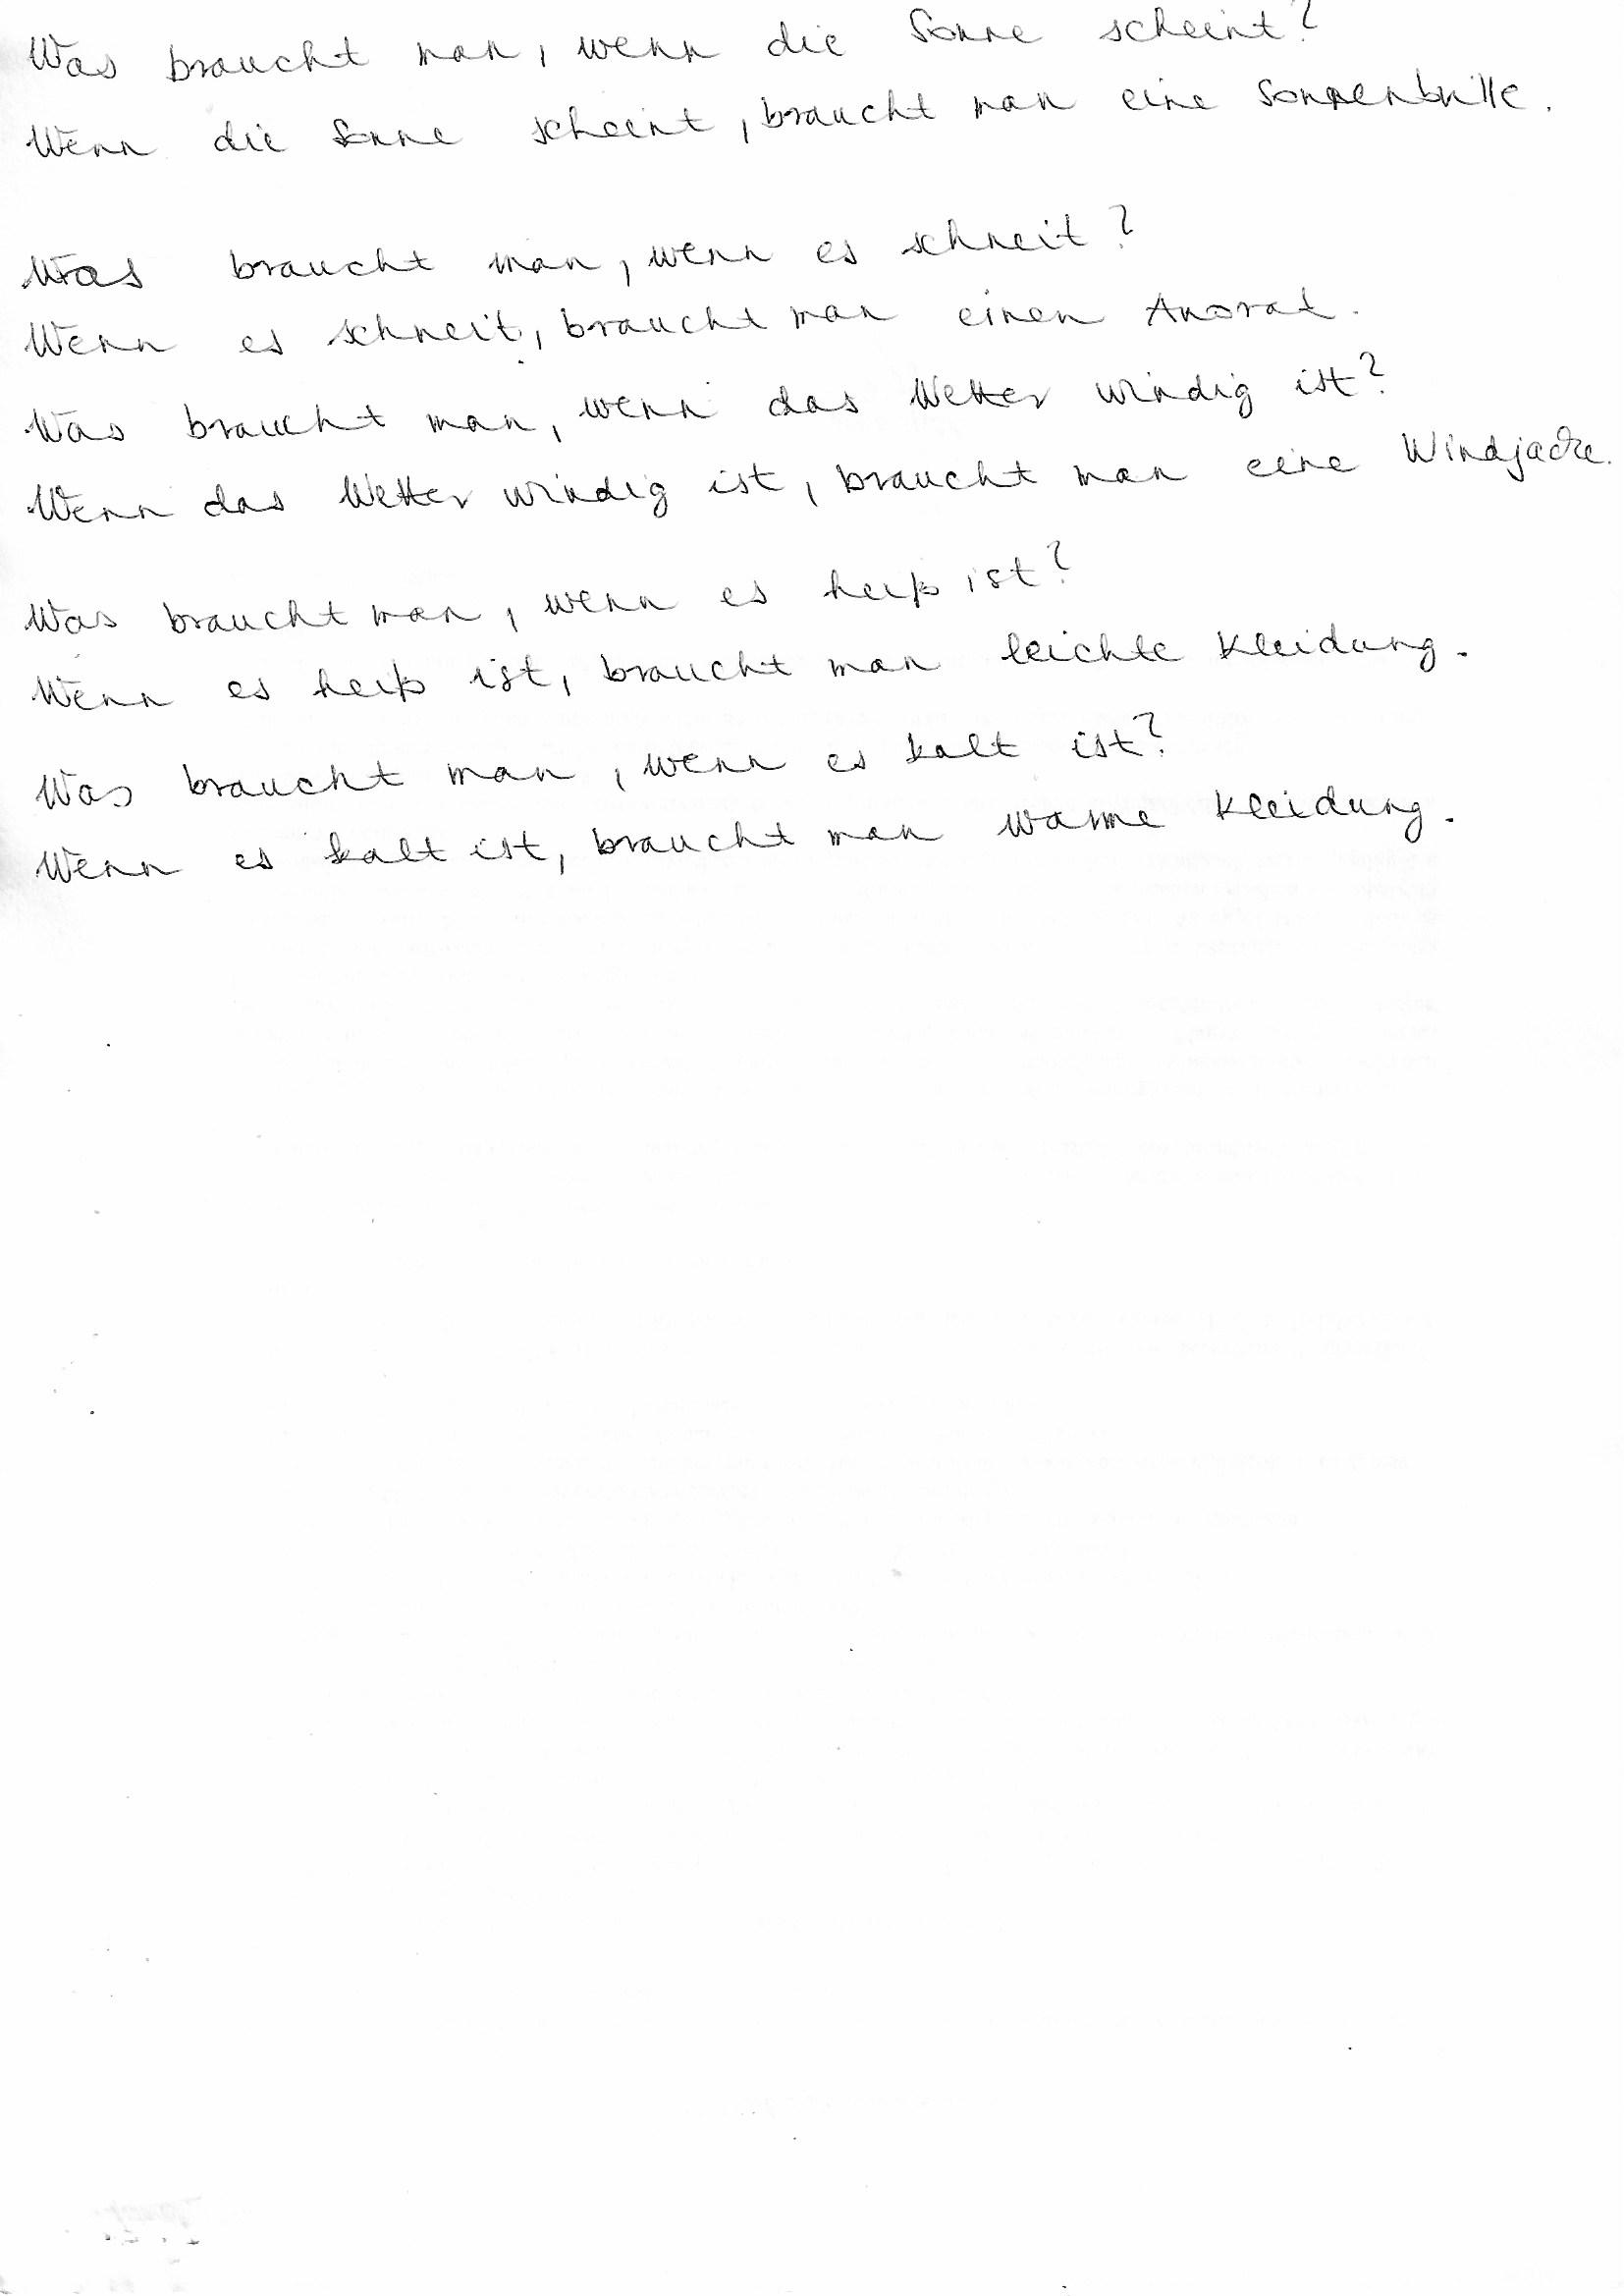 Was braucht man, wenn die Sonne scheint?
Wenn die Sonne scheint, braucht man eine Sonnenbrille.
Was braucht man, wenn es schneit?
Wenn es schneit, braucht man einen Anorak.
Was braucht man, wenn das Wetter windig ist?
Wenn das Wetter windig ist, braucht man eine Windjacke.
Was braucht man, wenn es heiß ist?
Wenn es heiß ist, braucht man leichte Kleidung.
Was braucht man, wenn es kalt ist?
Wenn es kalt ist, braucht man warme Kleidung.